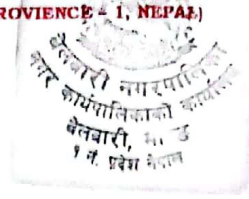 ROVIENCE - 1, NEPAL)
बेलबारी नगरपालिका
नगर कार्यपालिकाको कार्यालय
बेलबारी, मोरङ
१ नं. प्रदेश नेपाल